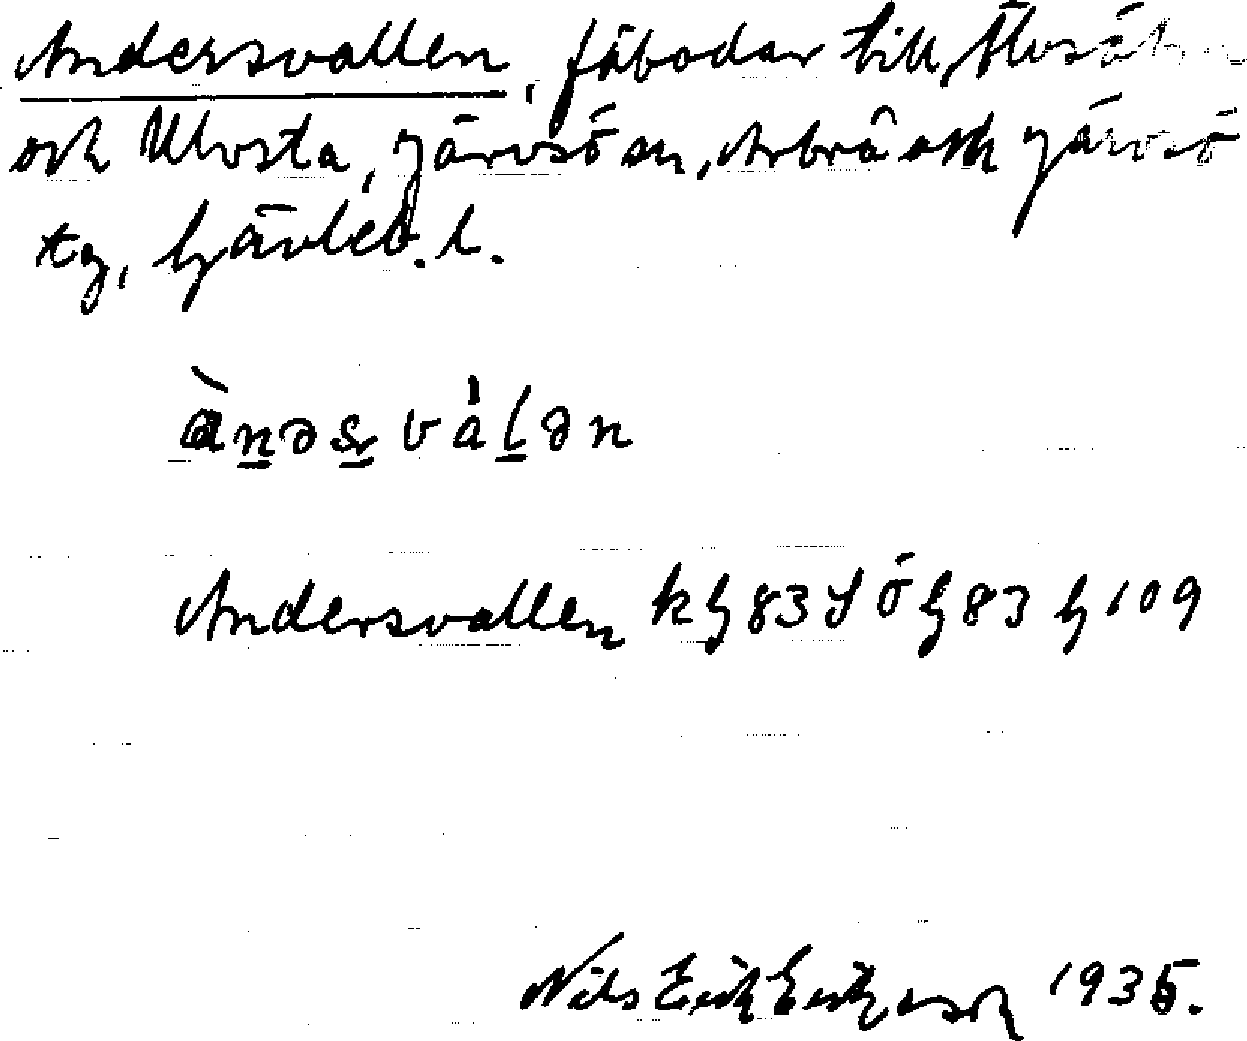 Andersvallen, fäbodar till Älvsätra
och Ulvsta, Järvsö sn, Arbrå och Järvsö
tg, Gävleb. l.
ànəs̲ vàl̲ən
Andersvallen kG83 JÖG83 G109
Nils Erik Eriksson 1935.